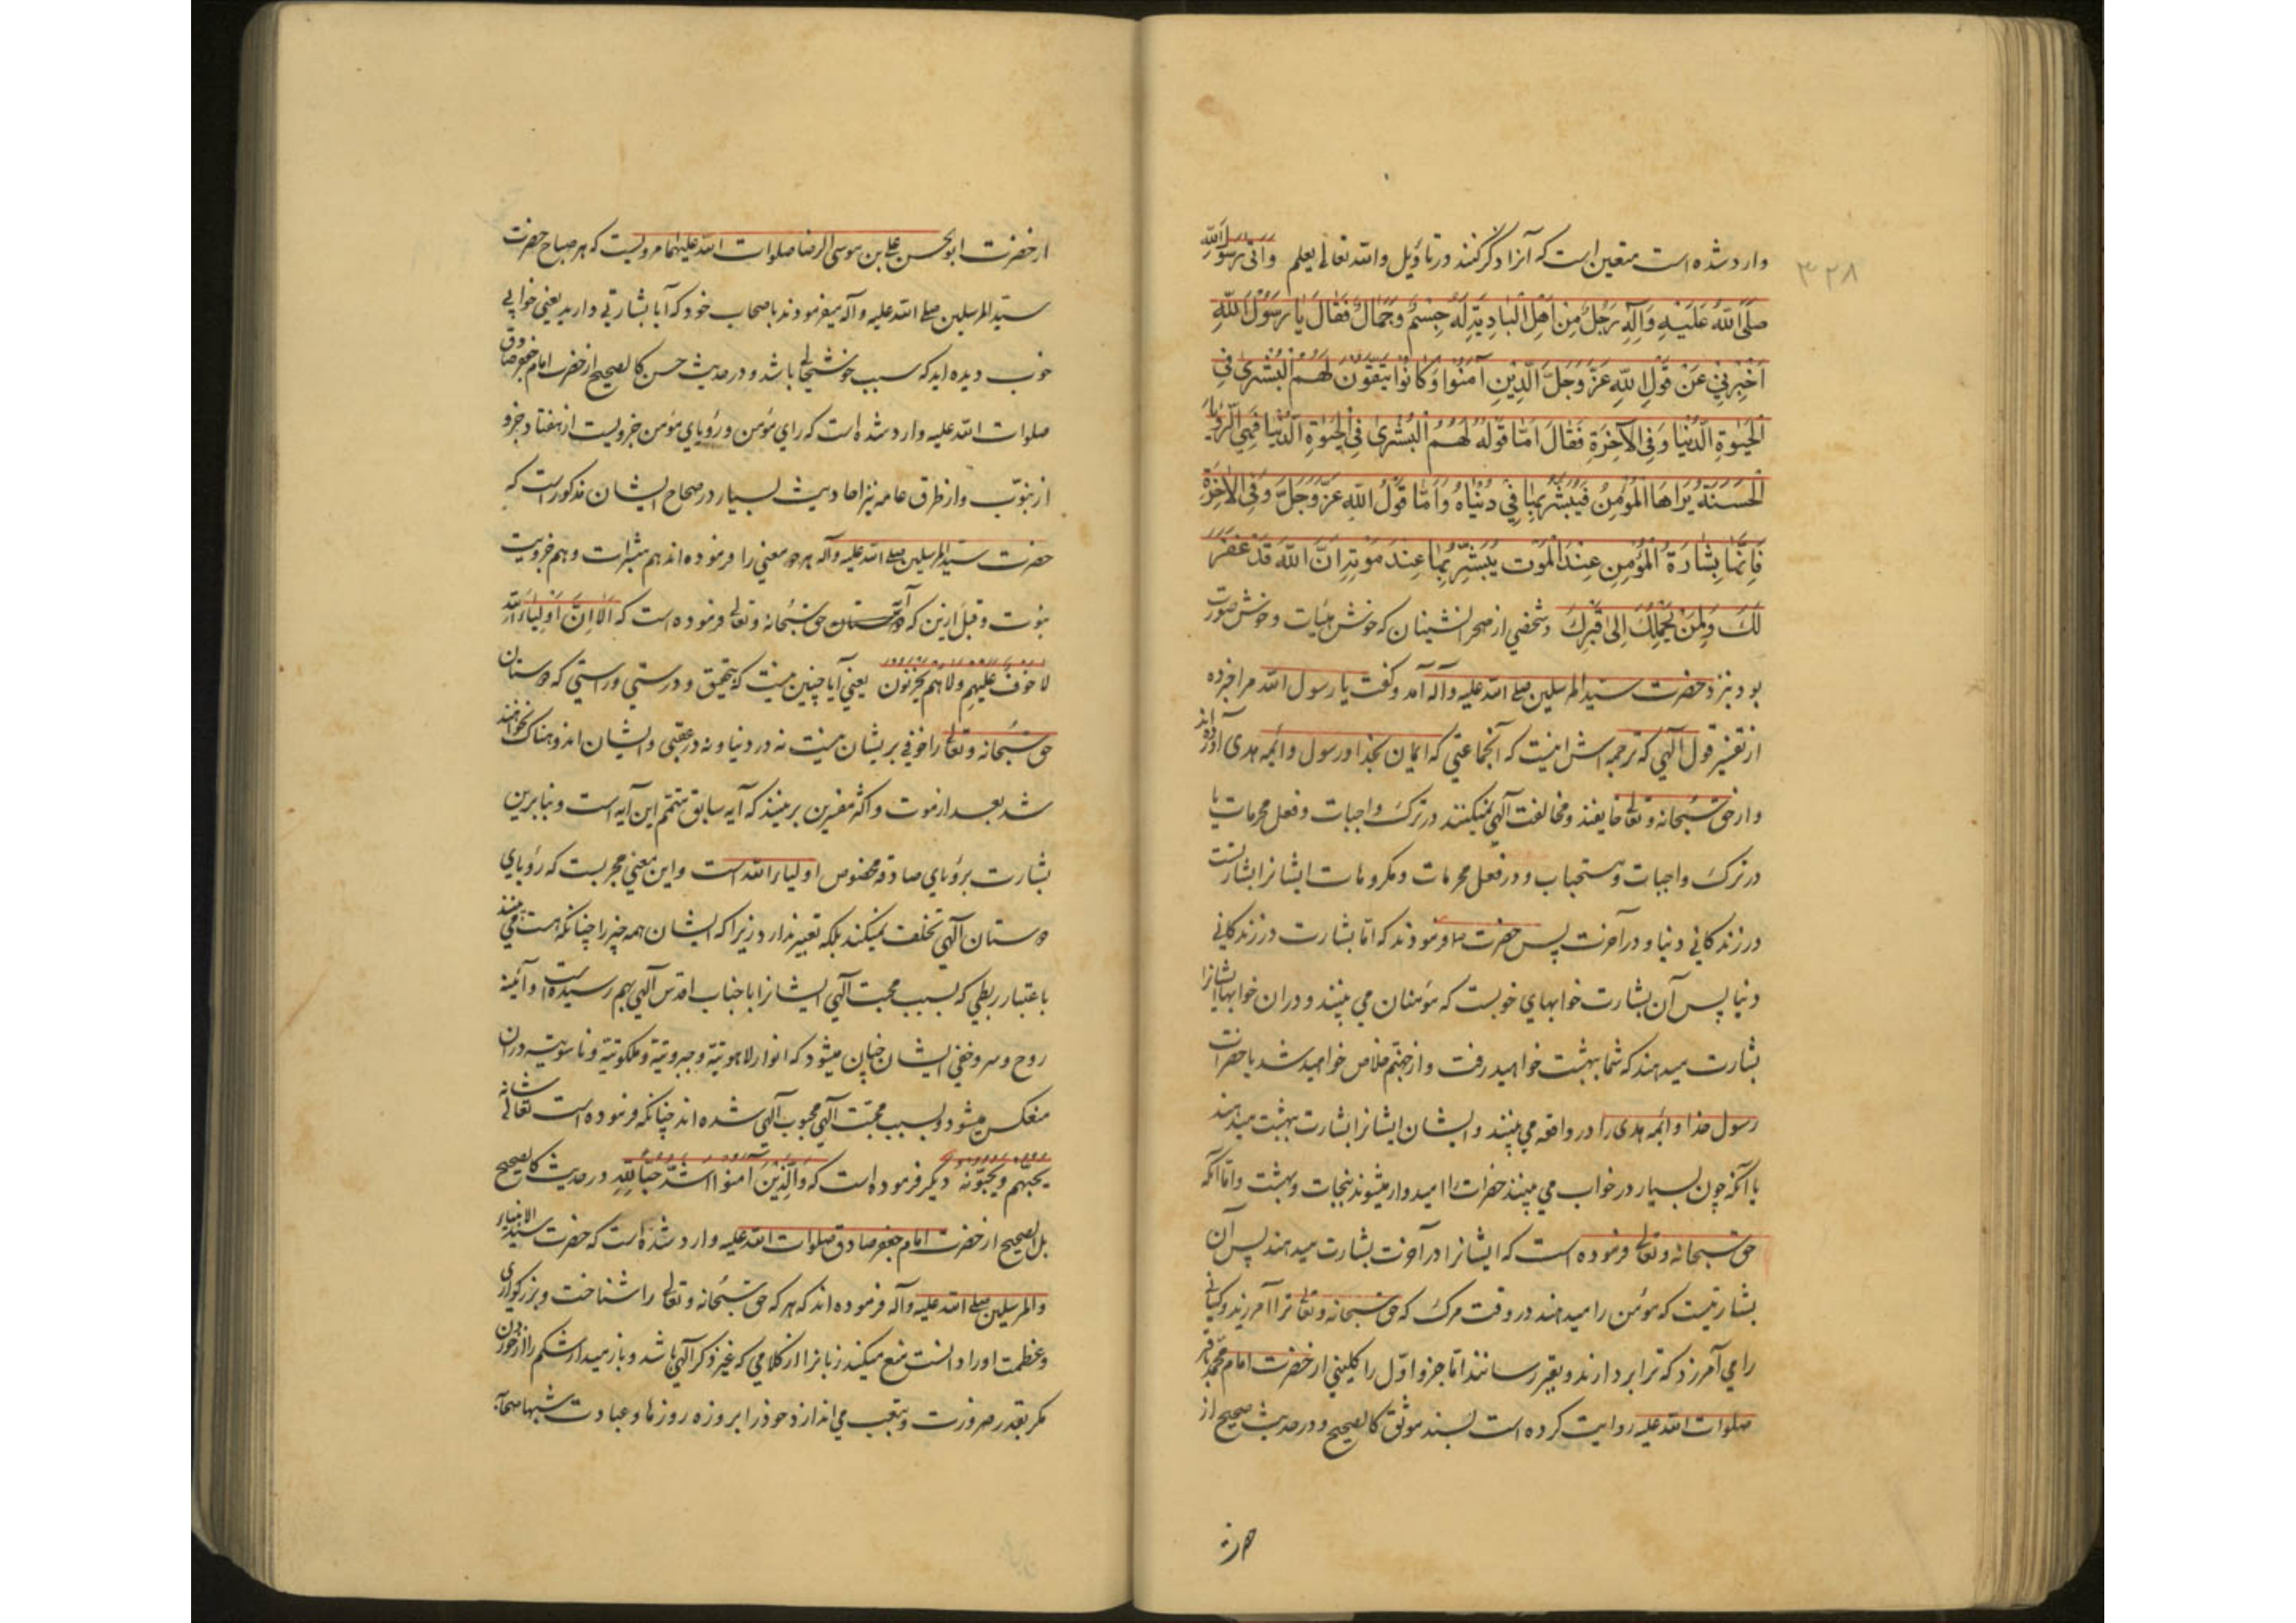 ۳۲۸
وارد شده است متعین است که آنرا ذکر کنند در تأویل والله تعالی یعلم وَاَتیٰ رَسُولَ اللهِ
صَلَّی اللهُ عَلَیْهِ وَآلِهِ رَجُلٌ مِنْ اَهْلِ الْبَادِیَةِ لَهُ جِسْمٌ وَجَمَالٌ فَقَالَ یَا رَسُولَ اللهِ
اَخْبِرْنِی عَنْ قَوْلِ اللهِ عَزَّ وَجَلَّ اَلَّذِینَ آمَنُوا وَکَانُوا یَتَّقُونَ لَهُمُ الْبُشْریٰ فِی
الْحَیٰوةِ الدُّنْیَا وَفِی الْآخِرَةِ فَقَالَ اَمَّا قَوْلُهُ لَهُمُ الْبُشْریٰ فِی الْحَیٰوةِ الدُّنْیَا فَهِیَ الرُّؤْیَا
الْحَسَنَةُ یَرَاهَا الْمُؤْمِنُ فَیُبَشَّرُ بِهَا فِی دُنْیَاهُ وَاَمَّا قَوْلُ اللهِ عَزَّ وَجَلَّ وَفِی الْآخِرَةِ
فَاِنَّهَا بِشَارَةُ الْمُؤْمِنِ عِنْدَ الْمَوْتِ یُبَشَّرُ بِهَا عِنْدَ مَوْتِهِ اِنَّ اللهَ قَدْ غَفَرَ
لَکَ وَلِمَنْ یَحْمِلُکَ اِلیٰ قَبْرِکَ وشخصی از صحرانشینان که خوش هیات و خوش صورت
بود بنزد حضرت سید المرسلین صلی الله علیه وآله آمد وگفت یا رسول الله مرا خبر ده
از تفسیر قول الهی که ترجمه اش اینست که آنجماعتی که ایمان بخدا و رسول وائمه هدی آورده اند
واز حق سبحانه وتعالی خایفند ومخالفت الهی نمیکنند در ترک واجبات وفعل محرمات یا
در ترک واجبات ومستحباب ودر فعل محرمات ومکروهات ایشانرا بشارتست
در زندکانی دنیا ودر آخرت پس حضرت فرمودند که اما بشارت در زندکانی
دنیا پس آن بشارت خوابهای خوبست که مؤمنان می بینند ودران خوابها ایشانرا
بشارت میدهند که شما ببهشت خواهید رفت واز جهنم خلاص خواهید شد یا حضرات
رسول خدا وائمه هدی را در واقعه می بینند وایشان ایشانرا بشارت ببهشت میدهند
یا آنکه چون بسیار در خواب می بینند حضرات را امیدوار میشوند بنجات وبهشت واما آنکه
حق سبحانه وتعالی فرموده است که ایشانرا در آخرت بشارت میدهند پس آن
بشارتیست که مؤمن را میدهند در وقت مرک که حق سبحانه وتعالی ترا آمرزید وکسانی
را می آمرزد که ترا بردارند وبقبر رسانند اما جزو اول را کلینی از حضرت امام محمد باقر
صلوات الله علیه روایت کرده است بسند موثق کالصحیح ودر حدیث صحیح از
حضرت
از حضرت ابو الحسن علی بن موسی الرضا صلوات الله علیهما مرویست که هر صباح حضرت
سید المرسلین صلی الله علیه وآله میفرمودند باصحاب خود که آیا بشارتی دارید یعنی خوابی
خوب دیده اید که سبب خوشحالی باشد ودر حدیث حسن کالصحیح از حضرت امام جعفر صادق
صلوات الله علیه وارد شده است که رای مؤمن ورؤیای مؤمن جزویست از هفتاد جزو
از نبوّت واز طرق عامه نیز احادیث بسیار در صحاح ایشان مذکور است که
حضرت سید المرسلین صلی الله علیه وآله هر دو معنی را فرموده اند هم مبشرات وهم جزویت
نبوت وقبل ازین که آیه دوستان حق سبحانه وتعالی فرموده است که اَلَا اِنَّ اَوْلِیَاءَ اللهِ
لَا خَوْفٌ عَلَیْهِمْ وَلَا هُمْ یَحْزَنُونَ یعنی آیا چنین نیست که بتحقیق ودرستی وراستی که دوستان
حق سبحانه وتعالی را خوفی بریشان نیست نه در دنیا ونه در عقبی وایشان اندوهناک نخواهند
شد بعد از موت واکثر مفسرین برینند که آیه سابق متمم این آیه است وبنابرین
بشارت برؤیای صادقه مخصوص اولیاء الله است واین معنی مجربست که رؤیای
دوستان الهی تخلف نمیکند بلکه تعبیر ندارد زیرا که ایشان همه چیز را چنانکه هست می بینند
باعتبار ربطی که بسبب محبت الهی ایشانرا با جناب اقدس الهی بهم رسیده است وآئینه
روح وسر وخفی ایشان چنان میشود که انوار لاهوتیة وجبروتیة وملکوتیة وناسوتیه دران
منعکس میشود وبسبب محبّت الهی محبوب الهی شده اند چنانکه فرموده است تعالی شانه
یُحِبُّهُمْ وَیُحِبُّونَهُ دیکر فرموده است که وَالَّذِینَ آمَنُوا اَشَدُّ حُبًّا لِلّٰهِ ودر حدیث کالصحیح
بل الصحیح از حضرت امام جعفر صادق صلوات الله علیه وارد شده است که حضرت سید الانبیاء
والمرسلین صلی الله علیه وآله فرموده اند که هر که حق سبحانه وتعالی را شناخت وبزرکواری
وعظمت اورا دانست منع میکند زبانرا از کلامی که غیر ذکر الهی باشد وباز میدارد شکم را از خوردن
مکر بقدر ضرورت وبتعب می اندازد خود را بروزه روزها وعبادت شبها صحابه